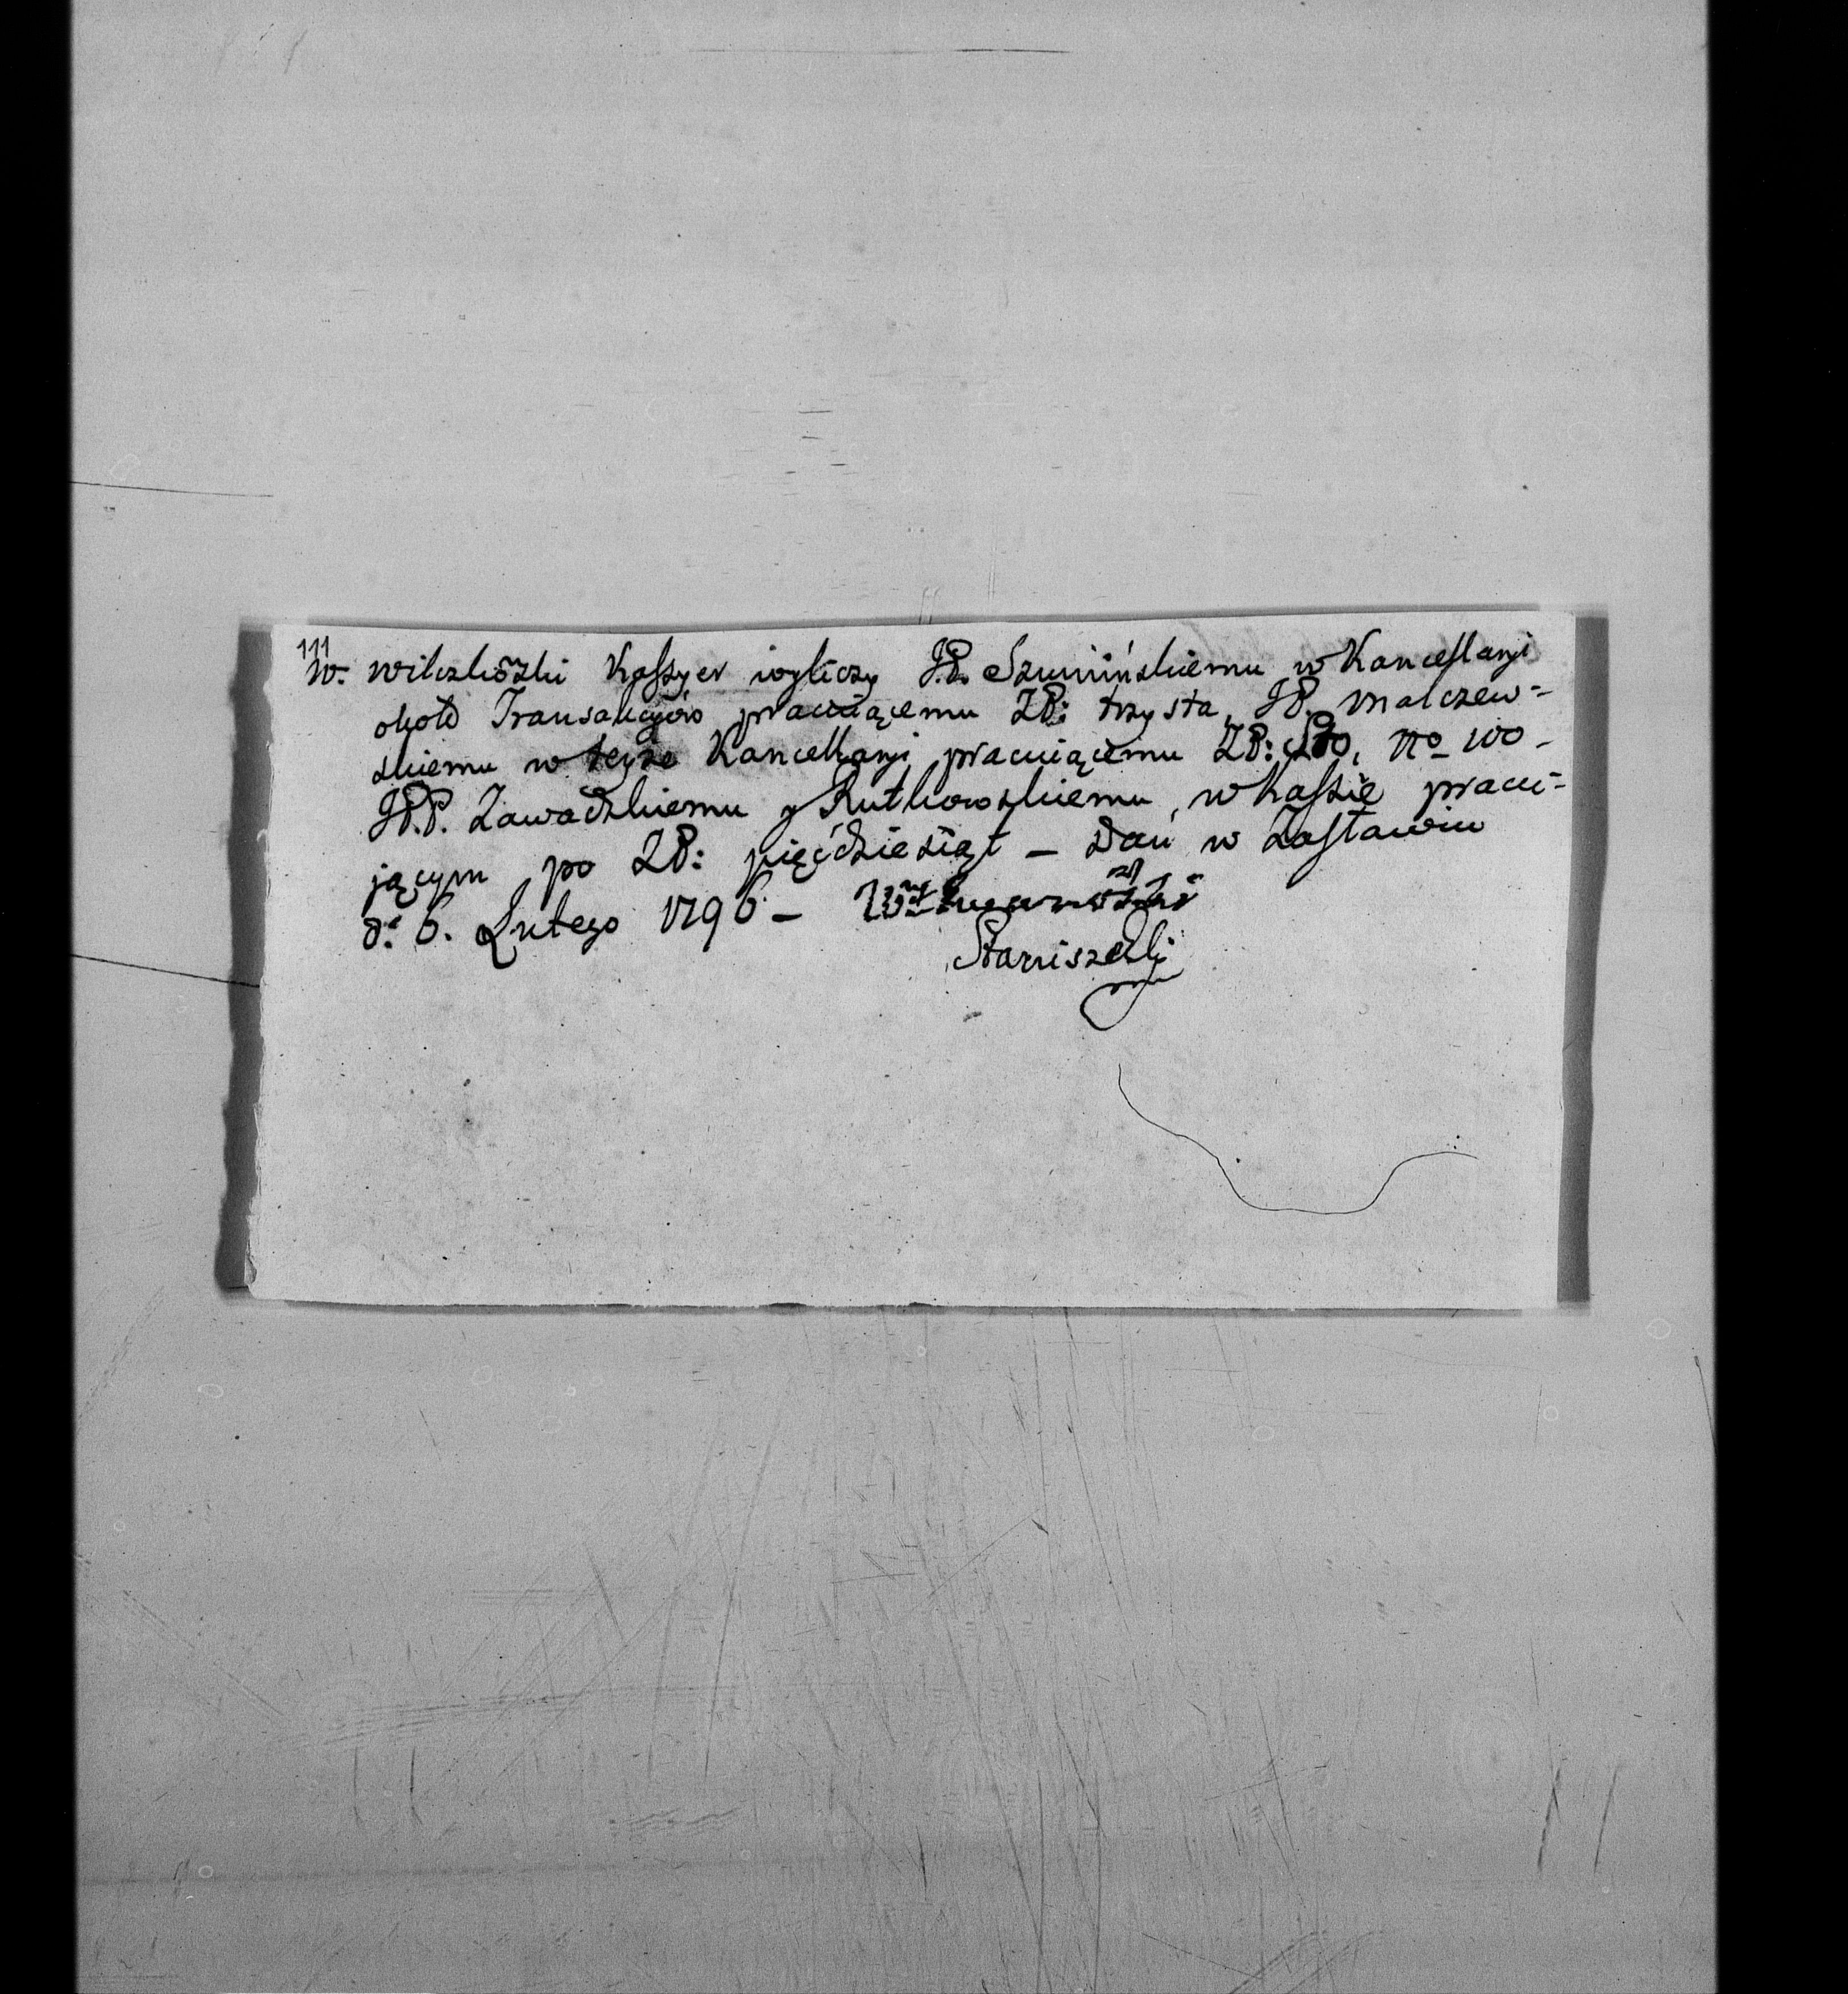 111
W. Wilczkoski Kassyer wyliczy J.P. Szumińskiemu w Kancellaryi
około Transakcyów pracuiącemu ZP: trzysta, JP. Malczew-
skiemu w teyże Kancellaryi pracuiącemu ZP: Sto, No 100 -
JP.P. Zawadzkiemu y Rutkowskiemu, w Kassie pracu-
jącym po ZP: pięćdziesiąt - Dań w Zastawiu
d: 6. Lutego 1796 -
Staniszewski